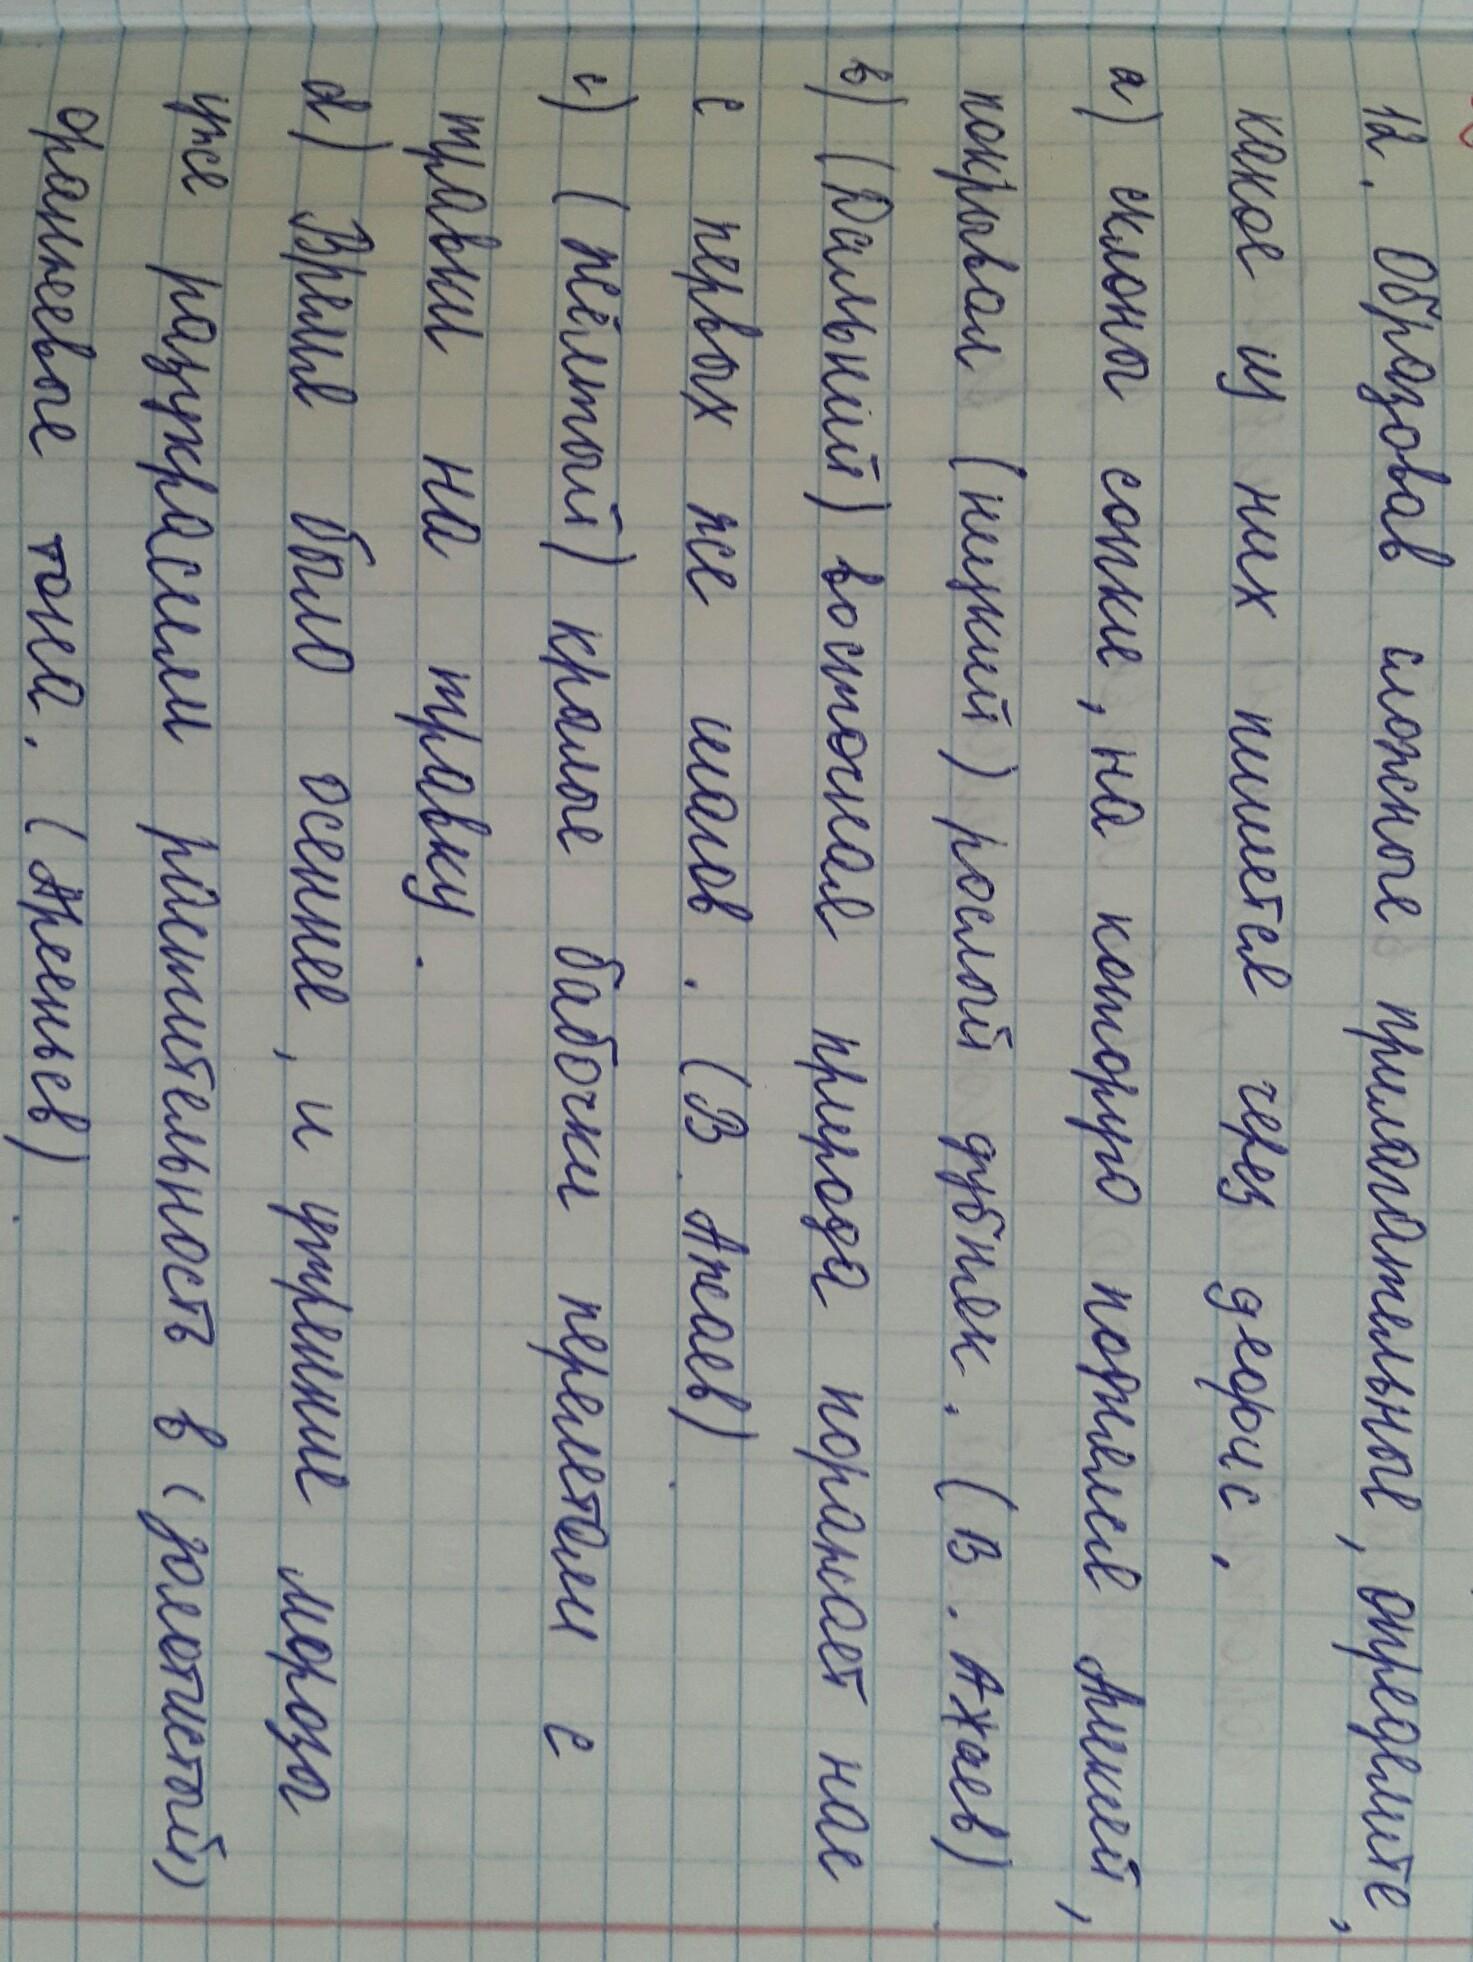 12. Образовав сложные прилагательные, определите,
какое из них пишется через дефис.
а) склоны сопки, на которую поднялся Алексей,
покрывал (низкий) рослый дубняк. (В. Ажаев)
в) (Дальний) восточная природа поражает нас
с первых же шагов. (В. Ажаев)
с) (жёлтый) крылые бабочки перелетали с
травки на травку.
d) Время было осеннее, и утренние морозы
уже разукрасили растительность в (золотистый)
оранжевые тона. (Арсеньев)